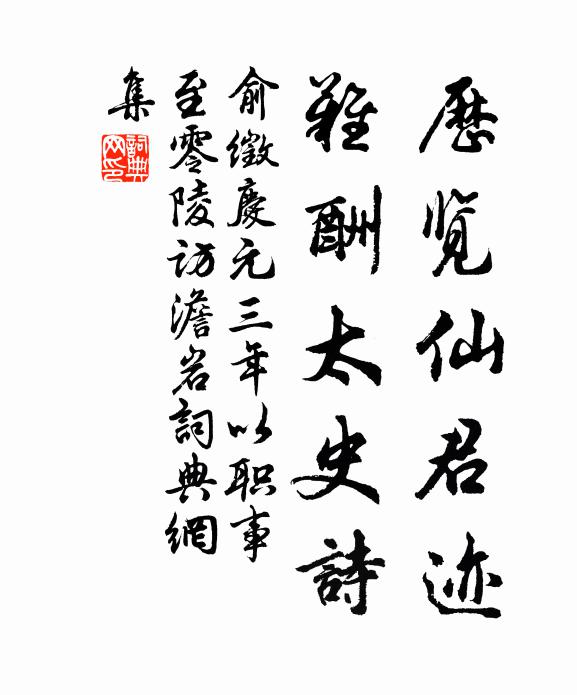 歷覽仙君迹
難酬太史詩
俞徵慶元三年以职事
至零陵访澹岩詞典網
集
詞典網印